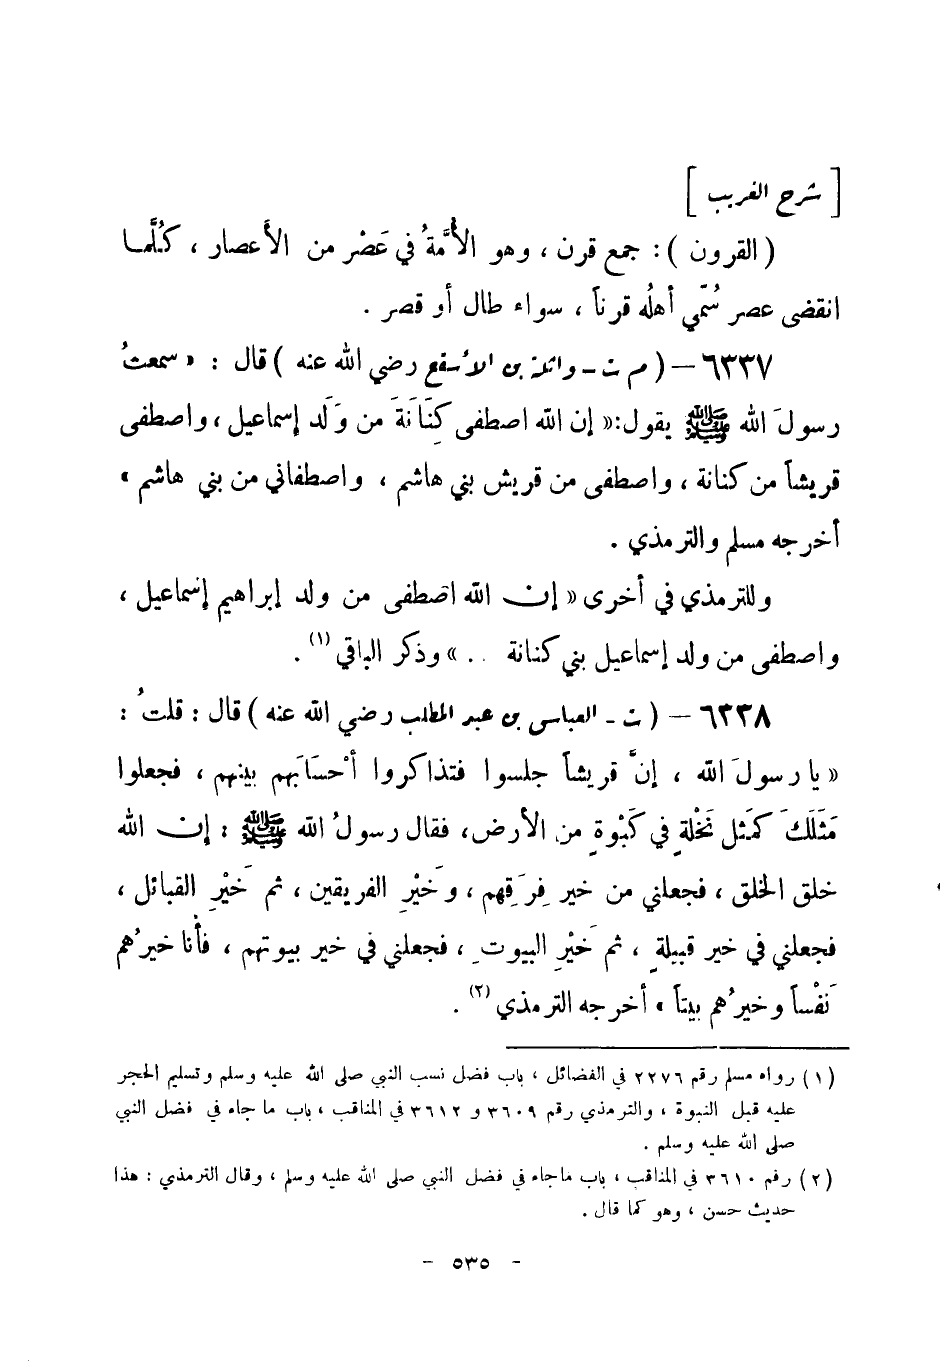 [ شرح الغريب ]
( القرون ) : جمع قرن ، وهو الأُمَّةُ في عَصْر من الأعصار ، كُلَّما
انقضى عصر سُمّي أهلُه قرناً ، سواء طال أو قصر .
٦٣٣٧ – ( م ت - واثلة بن الأسقع رضي الله عنه ) قال : « سمعتُ
رسولَ الله ﷺ يقول:« إن الله اصطفى كِنَانَةَ من وَلَد إسماعيل ، واصطفى
قريشاً من كنانة ، واصطفى من قريش بني هاشم ، واصطفاني من بني هاشم »
أخرجه مسلم والترمذي .
وللترمذي في أخرى « إن الله اصطفى من ولد إبراهيم إسماعيل ،
واصطفى من ولد إسماعيل بني كنانة .. » وذكر الباقي (١) .
٦٣٣٨ – ( ت - العباس بن عبد المطلب رضي الله عنه ) قال : قلتُ :
« يا رسولَ الله ، إنَّ قريشاً جلسوا فتذاكروا أحسَابَهم بينهم ، فجعلوا
مَثَلَكَ كمَثل نَخْلةٍ في كَبْوةٍ من الأرض، فقال رسولُ الله ﷺ : إن الله
خلق الخلق ، فجعلني من خير فِرَقِهم ، وخَيْرِ الفريقين ، ثم خَيْرِ القبائل ،
فجعلني في خير قبيلةٍ ، ثم خَيْرِ البيوتِ ، فجعلني في خير بيوتهم ، فأنا خيرُهم
نَفْساً وخيرُهم بيتاً » أخرجه الترمذي (٢) .
(١) رواه مسلم رقم ٢٢٧٦ في الفضائل ، باب فضل نسب النبي صلى الله عليه وسلم وتسليم الحجر
عليه قبل النبوة ، والترمذي رقم ٣٦٠٩ و ٣٦١٢ في المناقب ، باب ما جاء في فضل النبي
صلى الله عليه وسلم .
(٢) رقم ٣٦١٠ في المناقب ، باب ماجاء في فضل النبي صلى الله عليه وسلم ، وقال الترمذي : هذا
حديث حسن ، وهو كما قال .
- ٥٣٥ -